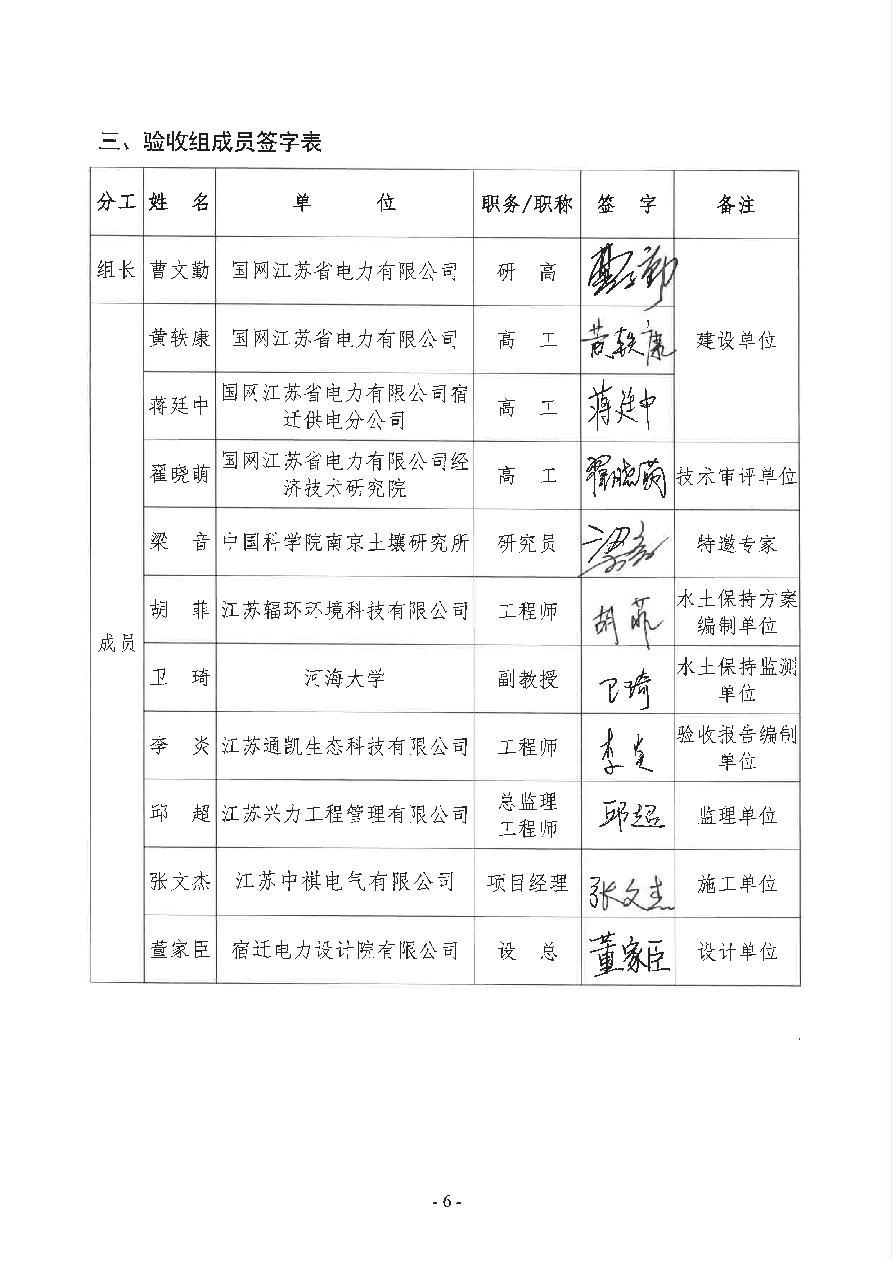 三、验收组成员签字表
分工 姓 名 单 位 职务/职称 签 字 备注
组长 曹文勤 国网江苏省电力有限公司 研 高
黄轶康 国网江苏省电力有限公司 高 工 黄轶康 建设单位
蒋廷中 国网江苏省电力有限公司宿
迁供电分公司 高 工 蒋廷中
翟晓萌 国网江苏省电力有限公司经
济技术研究院 高 工 翟晓萌 技术审评单位
梁 音 中国科学院南京土壤研究所 研究员 梁音 特邀专家
成员
胡 菲 江苏辐环环境科技有限公司 工程师 胡菲 水土保持方案
编制单位
卫 琦 河海大学 副教授 卫琦 水土保持监测
单位
李 炎 江苏通凯生态科技有限公司 工程师 李炎 验收报告编制
单位
邱 超 江苏兴力工程管理有限公司 总监理
工程师 邱超 监理单位
张文杰 江苏中祺电气有限公司 项目经理 张文杰 施工单位
董家臣 宿迁电力设计院有限公司 设 总 董家臣 设计单位
- 6 -